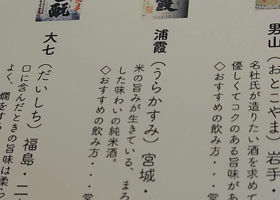 男山
(おとこやま)岩手
名杜氏が造りたい酒を求めて
優しくてコクのある旨味があ
◇おすすめの飲み方・・・常
浦霞
(うらかすみ)宮城・
米の旨みが生きている、まろ
した味わいの純米酒。
◇おすすめの飲み方・・・常
大七
(だいしち)福島・二
口に含んだときの旨味は柔ら
よく、燗をする